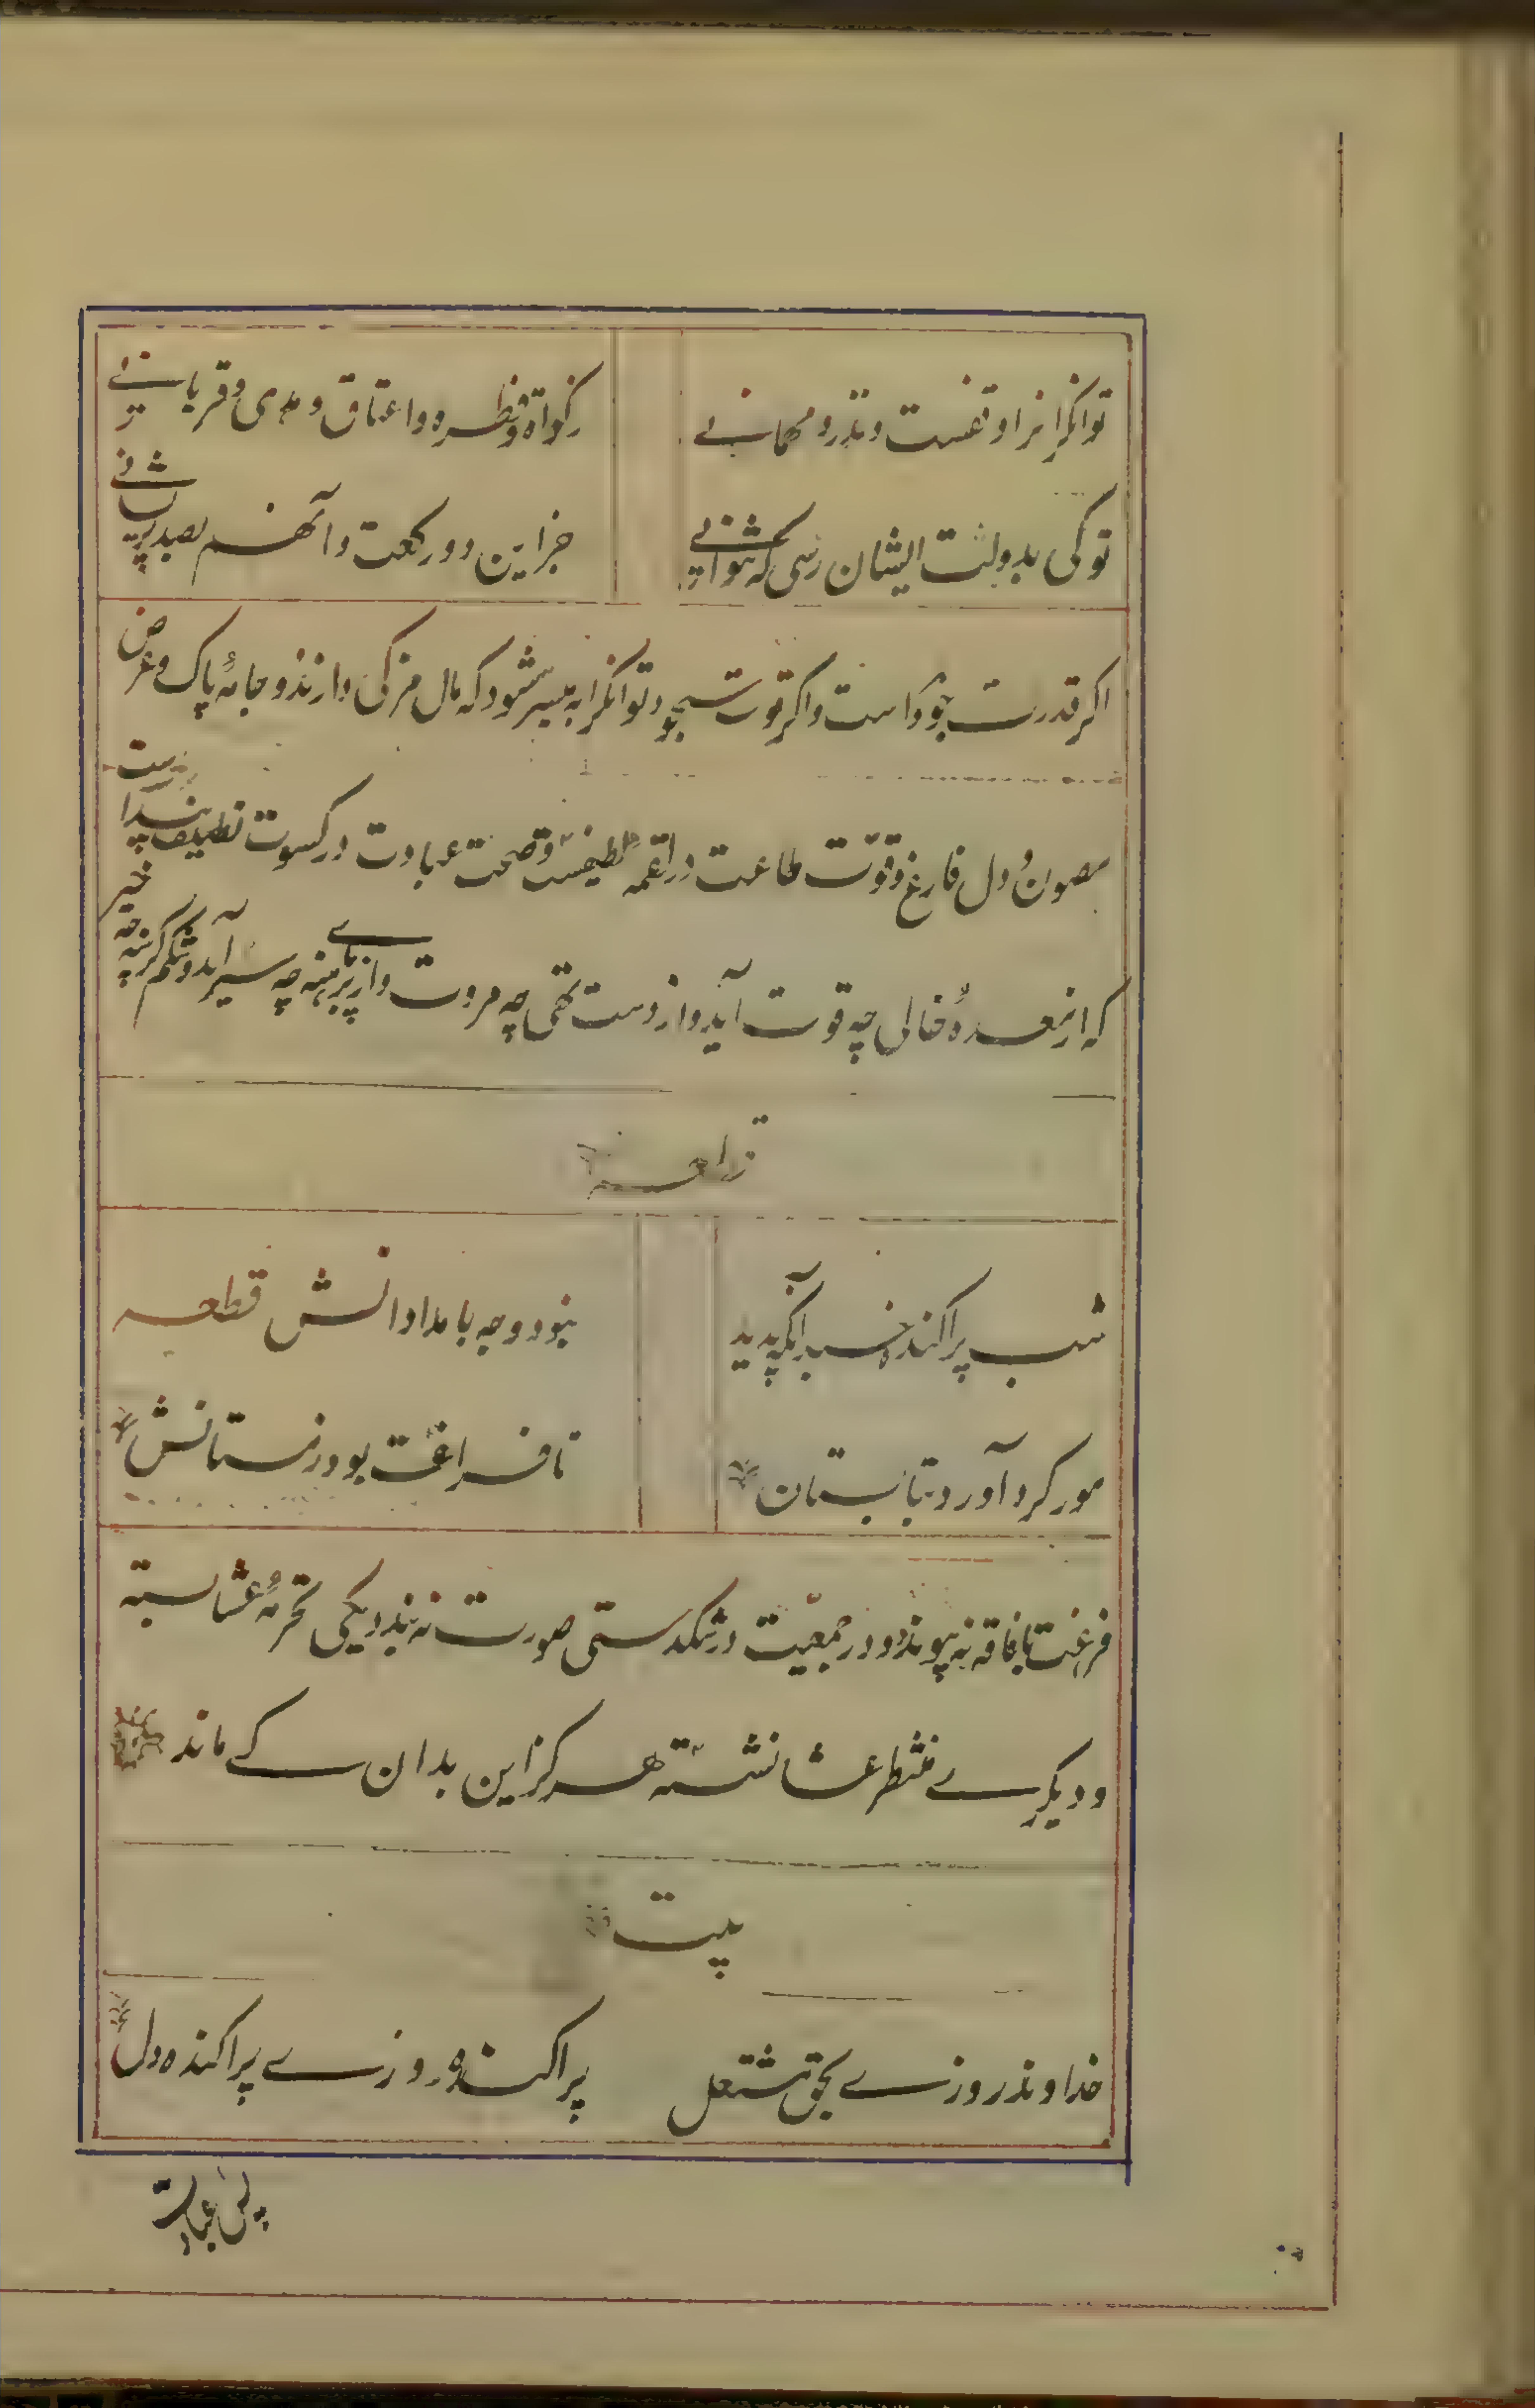 توانکرانرا وقفست و نذر و مهمانے زکواة و فطره و اعتاق و هدی و قربانے
تو کی بدولت ایشان رسی که نتوانے جز این دو رکعت و آنهم بصد پریشانے
اکر قدرت جود است و اکر قوت سجود توانکرا به میسر شود که مال مزکی دارند و جامهٔ پاک و عرض
مصون و دل فارغ و قوّت طاعت در لقمهٔ لطیفست و صحت عبادت در کسوت نظیف پیداست
که از معدهٔ خالی چه قوت آید و از دست تهی چه مروت و از پای برهنه چه سیر آید و شکم کرسنه چه خیر
قطعه
شب پراکنده خسبد آنکه پدید نبود وجه بامدادانش قطعه
مور کرد آورد بتابستان تا فراغت بود زمستانش
فرغت با فاقه نه پیوندد و در جمعیّت در تنکدستی صورت نه بندد یکی تحرمهٔ عشا بسته
و دیکرے منتظر عشا نشسته هرکز این بدان کے ماند
بیت
خداوند روزے بحق مشتغل پراکنده روزے پراکنده دل
پس عبادت